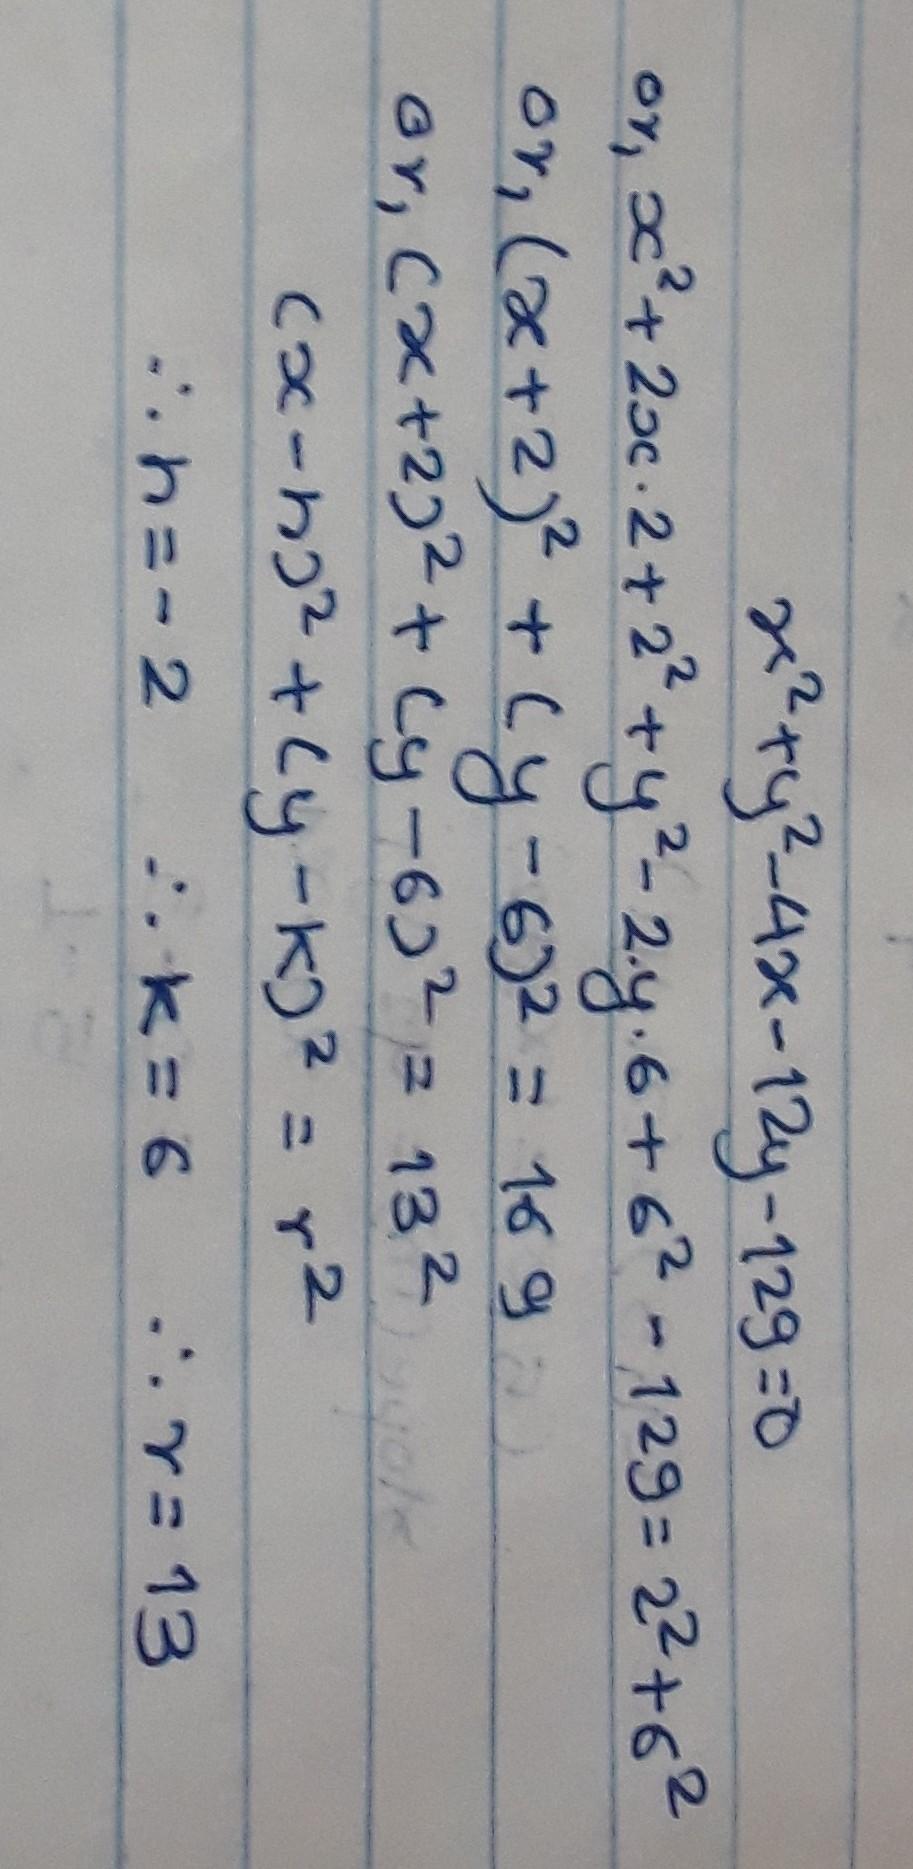 x²+y²-4x-12y-129=0
or, x²+2x.2+2²+y²-2.y.6+6²-129=2²+6²
or, (x+2)²+(y-6)²=169
or, (x+2)²+(y-6)²=13²
(x-h)²+(y-k)²=r²
∴h=-2 ∴k=6 ∴r=13